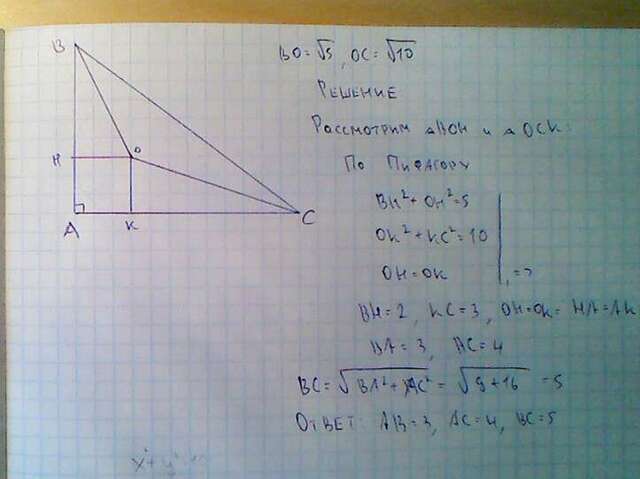 B
H
O
A
K
C
BO = √5, OC = √10
РЕШЕНИЕ
РАССМОТРИМ △BOH И △OCK:
ПО ПИФАГОРУ
BH² + OH² = 5
OK² + KC² = 10
OH = OK , => 
BH = 2, KC = 3, OH = OK = HA = AK
BA = 3, AC = 4
BC = √BA² + AC² = √9 + 16 = 5
ОТВЕТ: AB = 3, AC = 4, BC = 5